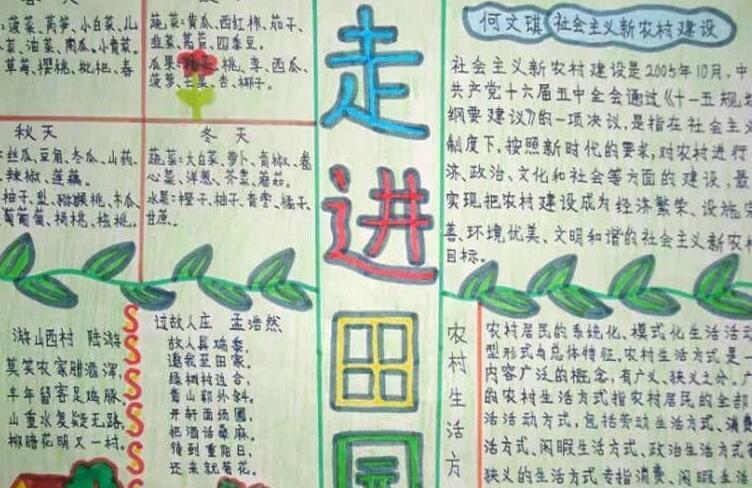 :菠菜、莴笋、小白菜、儿
菜、油菜、南瓜、小青菜。
草莓、樱桃、枇杷、春
蔬菜:黄瓜、西红柿、茄子、
韭菜、莴苣、四季豆。
瓜果:桃子、桃、李、西瓜、
菠萝、芒果、杏、椰子。
秋天
:丝瓜、豆角、冬瓜、山药、
辣椒、莲藕。
柚子、梨、猕猴桃、木瓜、
葡萄、杨桃、核桃。
冬天
蔬菜:大白菜、萝卜、青椒、卷
心菜、洋葱、芥菜、蘑菇。
水果:橙子、柚子、青枣、橘子、
甘蔗。
游山西村 陆游
莫笑农家腊酒浑,
丰年留客足鸡豚。
山重水复疑无路,
柳暗花明又一村。
过故人庄 孟浩然
故人具鸡黍,
邀我至田家。
绿树村边合,
青山郭外斜。
开轩面场圃,
把酒话桑麻。
待到重阳日,
还来就菊花。
走进田园
何文琪 社会主义新农村建设
社会主义新农村建设是2005年10月,中
共产党十六届五中全会通过《十一五规
纲要建议》的一项决议,是指在社会主
制度下,按照新时代的要求,对农村进行
济、政治、文化和社会等方面的建设,最
实现把农村建设成为经济繁荣、设施完
善、环境优美、文明和谐的社会主义新农村
目标。
农村生活方
农村居民的系统化、模式化生活活动
型形式与总体特征。农村生活方式是一
内容广泛的概念,有广义、狭义之分。广
的农村生活方式指农村居民的全部
活活动方式,包括劳动生活方式、消费
活方式、闲暇生活方式、政治生活方式
狭义的生活方式专指消费、闲暇生活